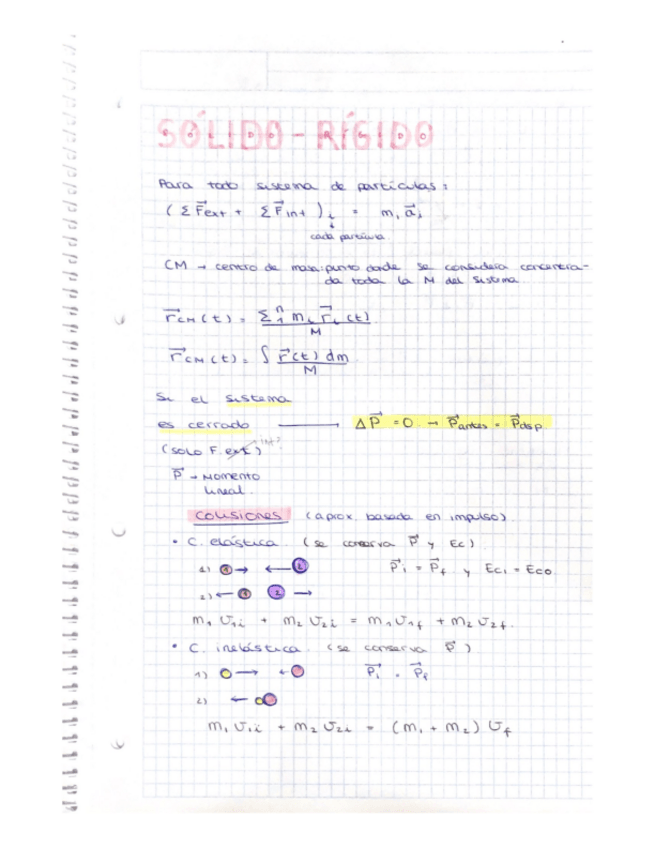 SÓLIDO - RÍGIDO
Para todo sistema de partículas:
(Σ F⃗ext + Σ F⃗int)i = mi a⃗i
cada partícula.
CM → centro de masa: punto donde se considera concentra-
da toda la M del sistema.
r⃗CM(t) = Σ₁ⁿ mi r⃗i(t) / M
r⃗CM(t) = ∫ r⃗(t) dm / M
Si el sistema
es cerrado → ΔP⃗ = 0 → P⃗antes = P⃗dsp.
(solo F. ext) int?
P⃗ → Momento
lineal.
COLISIONES (aprox. basada en impulso).
• C. elástica. (se conserva P⃗ y Ec).
1) 1 → ← 2 P⃗i = P⃗f y Eci = Eco.
2) ← 1 2 →
m1 v1i + m2 v2i = m1 v1f + m2 v2f.
• C. inelástica. (se conserva P⃗)
1) → ← P⃗i = P⃗f
2) ←
m1 v1i + m2 v2i = (m1 + m2) vf